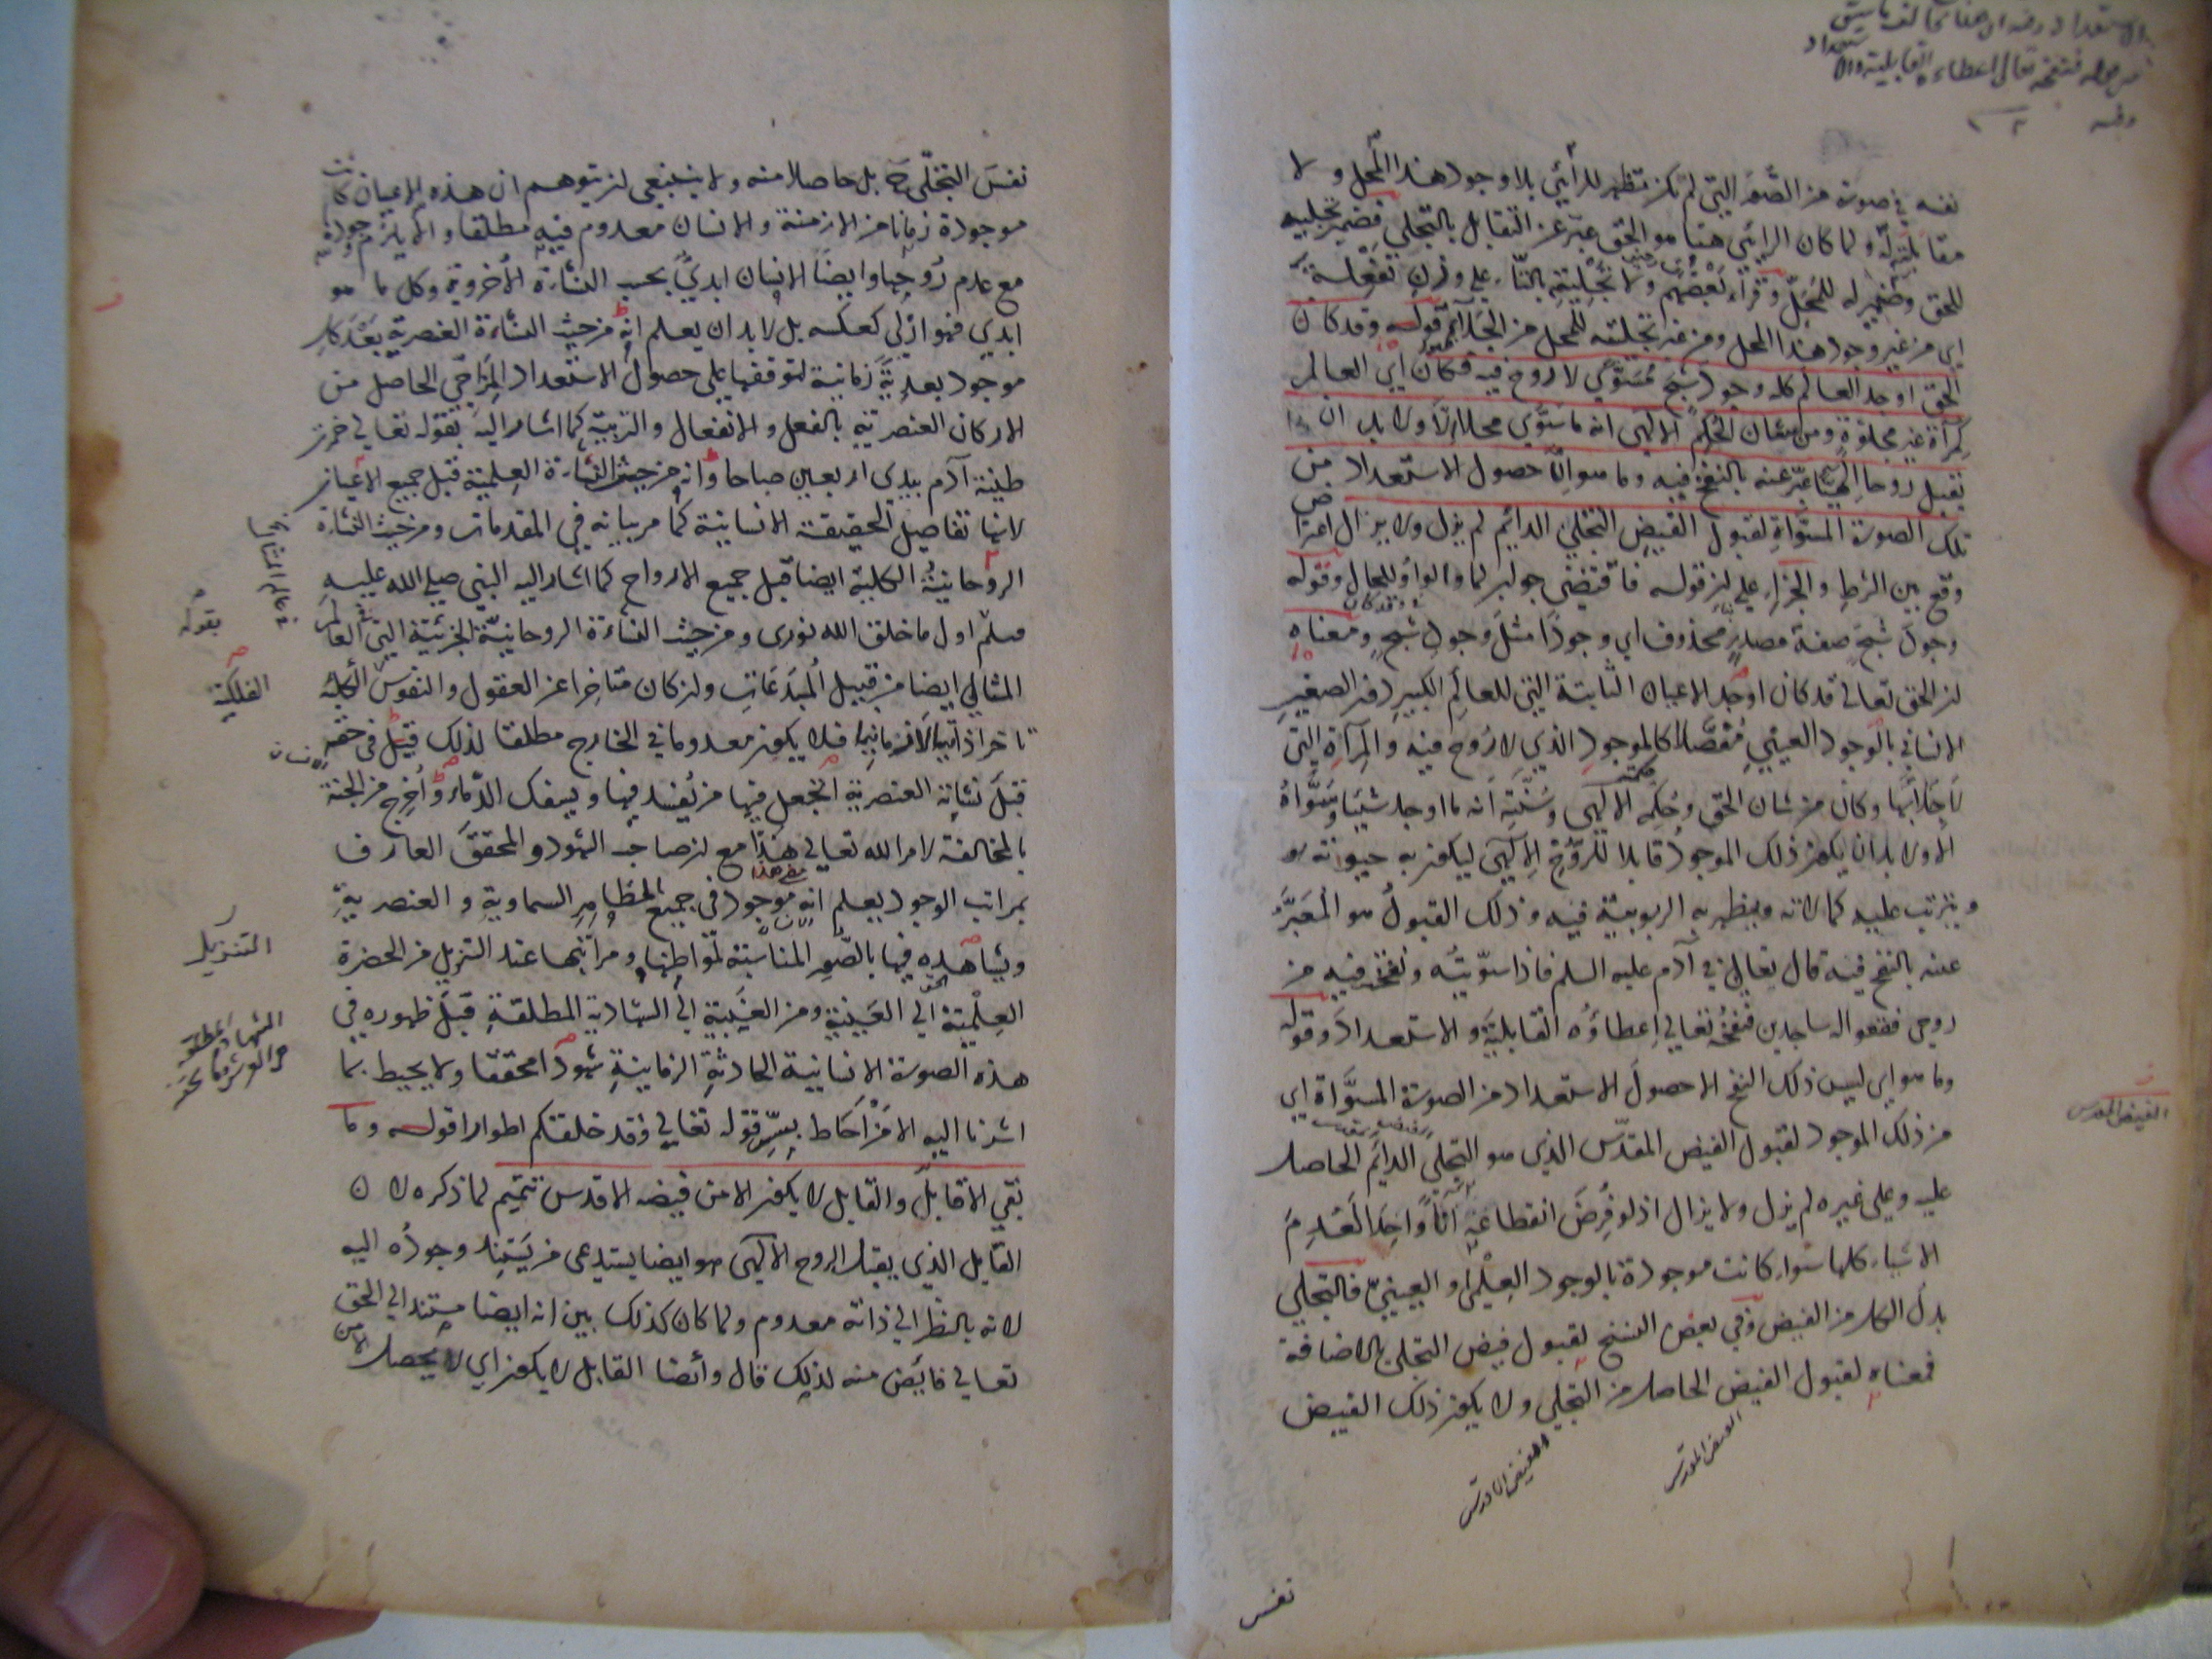 نفسه في صورة من الصور التي لم تكن تظهر للرائي بلا وجود هذا المحل ولا
مقابلته له ولما كان الرائي هنا هو الحق عبر عن التقابل بالتجلي فضمير تجليه
للحق وضمير له للمحل وقراء بعضهم ولا تجليته بالتاء على وزن تفعلة
اي من غير وجود هذا المحل ومن غير تجليته للمحل من الجلاء قوله وقد كان
الحق اوجد العالم كله وجود شبح مسوى لا روح فيه فكان اي العالم
كمرآة غير مجلوة ومن شان الحكم الالهي انه ما سوى محلا الا ولا بد ان
يقبل روحا الهيا عبر عنه بالنفخ فيه وما هو الا حصول الاستعداد من
تلك الصورة المسواة لقبول الفيض التجلي الدائم لم يزل ولا يزال اعتراض
وقع بين الشرط والجزاء على ان قوله فاقتضى جواب لما والواو للحال وقوله
وجود شبح صفة مصدر محذوف اي وجودا مثل وجود شبح ومعناه
ان الحق تعالى قد كان اوجد الاعيان الثابتة التي للعالم الكبير دون الصغير
الانساني بالوجود العيني مفصلا كالموجود الذي لا روح فيه والمرآة التي
لا جلاء لها وكان من شان الحق وحكمه الالهي وسنته انه ما اوجد شيئا وسواه
الا ولا بد ان يكون ذلك الموجود قابلا للروح الالهي ليكون به حيوته
ويترتب عليه كمالاته ويظهر به الربوبية فيه وذلك القبول هو المعبر
عنه بالنفخ فيه قال تعالى في آدم عليه السلم فاذا سويته ونفخت فيه من
روحي فقعوا له ساجدين فنفخه تعالى اعطاؤه القابلية والاستعداد وقوله
وما هو اي ليس ذلك النفخ الا حصول الاستعداد من الصورة المسواة اي
من ذلك الموجود لقبول الفيض المقدس الذي هو التجلي الدائم الحاصل
عليه وعلى غيره لم يزل ولا يزال اذ لو فرض انقطاعه آنا واحدا لعدم
الاشياء كلها سواء كانت موجودة بالوجود العلمي او العيني فالتجلي
بدل الكل من الفيض وفي بعض النسخ لقبول فيض التجلي بالاضافة
فمعناه لقبول الفيض الحاصل من التجلي ولا يكون ذلك الفيض
الفيض المقدس
الفيض الاقدس
الفيض المقدس
نفس
نفس التجلي ح بل حاصلا منه ولا ينبغي ان يتوهم ان هذه الاعيان كانت
موجودة زمانا من الازمنة والانسان معدوم فيه مطلقا والا يلزم وجودها
مع عدم روحها وايضا الانسان ابدي بحسب النشاءة الاخروية وكل ما هو
ابدي فهو ازلي كعكسه بل لا بد ان يعلم انه من حيث النشاءة العنصرية بعد كل
موجود بعدية زمانية لتوقفها على حصول الاستعداد المزاجي الحاصل من
الاركان العنصرية بالفعل والانفعال والتربية كما اشار اليه بقوله تعالى خمرت
طينة آدم بيدي اربعين صباحا وانه من حيث النشاءة العلمية قبل جميع الاعيان
لانها تفاصيل الحقيقة الانسانية كما مر بيانه في المقدمات ومن حيث النشاءة
الروحانية الكلية ايضا قبل جميع الارواح كما اشار اليه النبي صلى الله عليه
وسلم اول ما خلق الله نوري ومن حيث النشاءة الروحانية الجزئية التي في العالم
المثالي ايضا من قبيل المبدعات وان كان متاخرا عن العقول والنفوس الكلية
تاخرا ذاتيا لا زمانيا فلا يكون معدوما في الخارج مطلقا لذلك قيل في حقه
قبل نشاته العنصرية اتجعل فيها من يفسد فيها ويسفك الدماء واخرج من الجنة
بالمخالفة لامر الله تعالى هذا مع ان صاحب الشهود والمحقق العارف
بمراتب الوجود يعلم انه موجود في جميع المظاهر السماوية والعنصرية
ويشاهده فيها بالصور المناسبة لمواطنها ومراتبها عند التنزيل من الحضرة
العلمية الى العينية ومن الغيبية الى الشهادية المطلقة قبل ظهوره في
هذه الصورة الانسانية الحادثة الزمانية شهودا محققا ولا يحيط بما
اشرنا اليه الا من احاط بسر قوله تعالى وقد خلقتكم اطوارا قوله وما
بقي الا قابل والقابل لا يكون الا من فيضه الاقدس تتميم لما ذكره لان
القابل الذي يقبل الروح الالهي هو ايضا يستدعي من يستند وجوده اليه
لانه بالنظر الى ذاته معدوم ولما كان كذلك بين انه ايضا مستند الى الحق
تعالى فايض منه لذلك قال وايضا القابل لا يكون اي لا يحصل الا من
بقوله
الفلكية
التنزيل